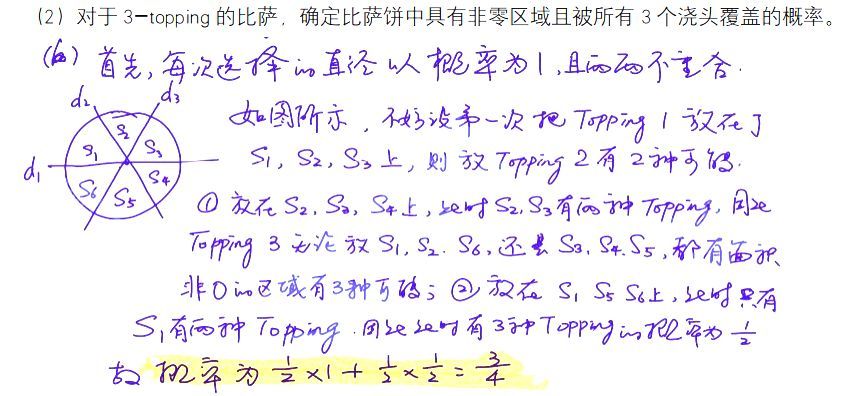 （2）对于 3-topping 的比萨，确定比萨饼中具有非零区域且被所有 3 个浇头覆盖的概率。
(b) 首先, 每次选择的直径以概率为1, 且两两不重合.
d₂ d₃
S₂
S₁ S₃
d₁
S₆ S₄
S₅
如图所示, 不妨设第一次把 Topping 1 放在了
S₁, S₂, S₃ 上, 则放 Topping 2 有2种可能.
① 放在 S₂, S₃, S₄ 上, 此时 S₂, S₃ 有两种 Topping, 因此
Topping 3 无论放 S₁, S₂. S₆, 还是 S₃, S₄. S₅, 都有面积
非0的区域有3种可能; ② 放在 S₁ S₅ S₆上, 此时只有
S₁有两种 Topping. 因此此时有3种Topping的概率为 1/2
故 概率为 1/2 ×1 + 1/2 × 1/2 = 3/4